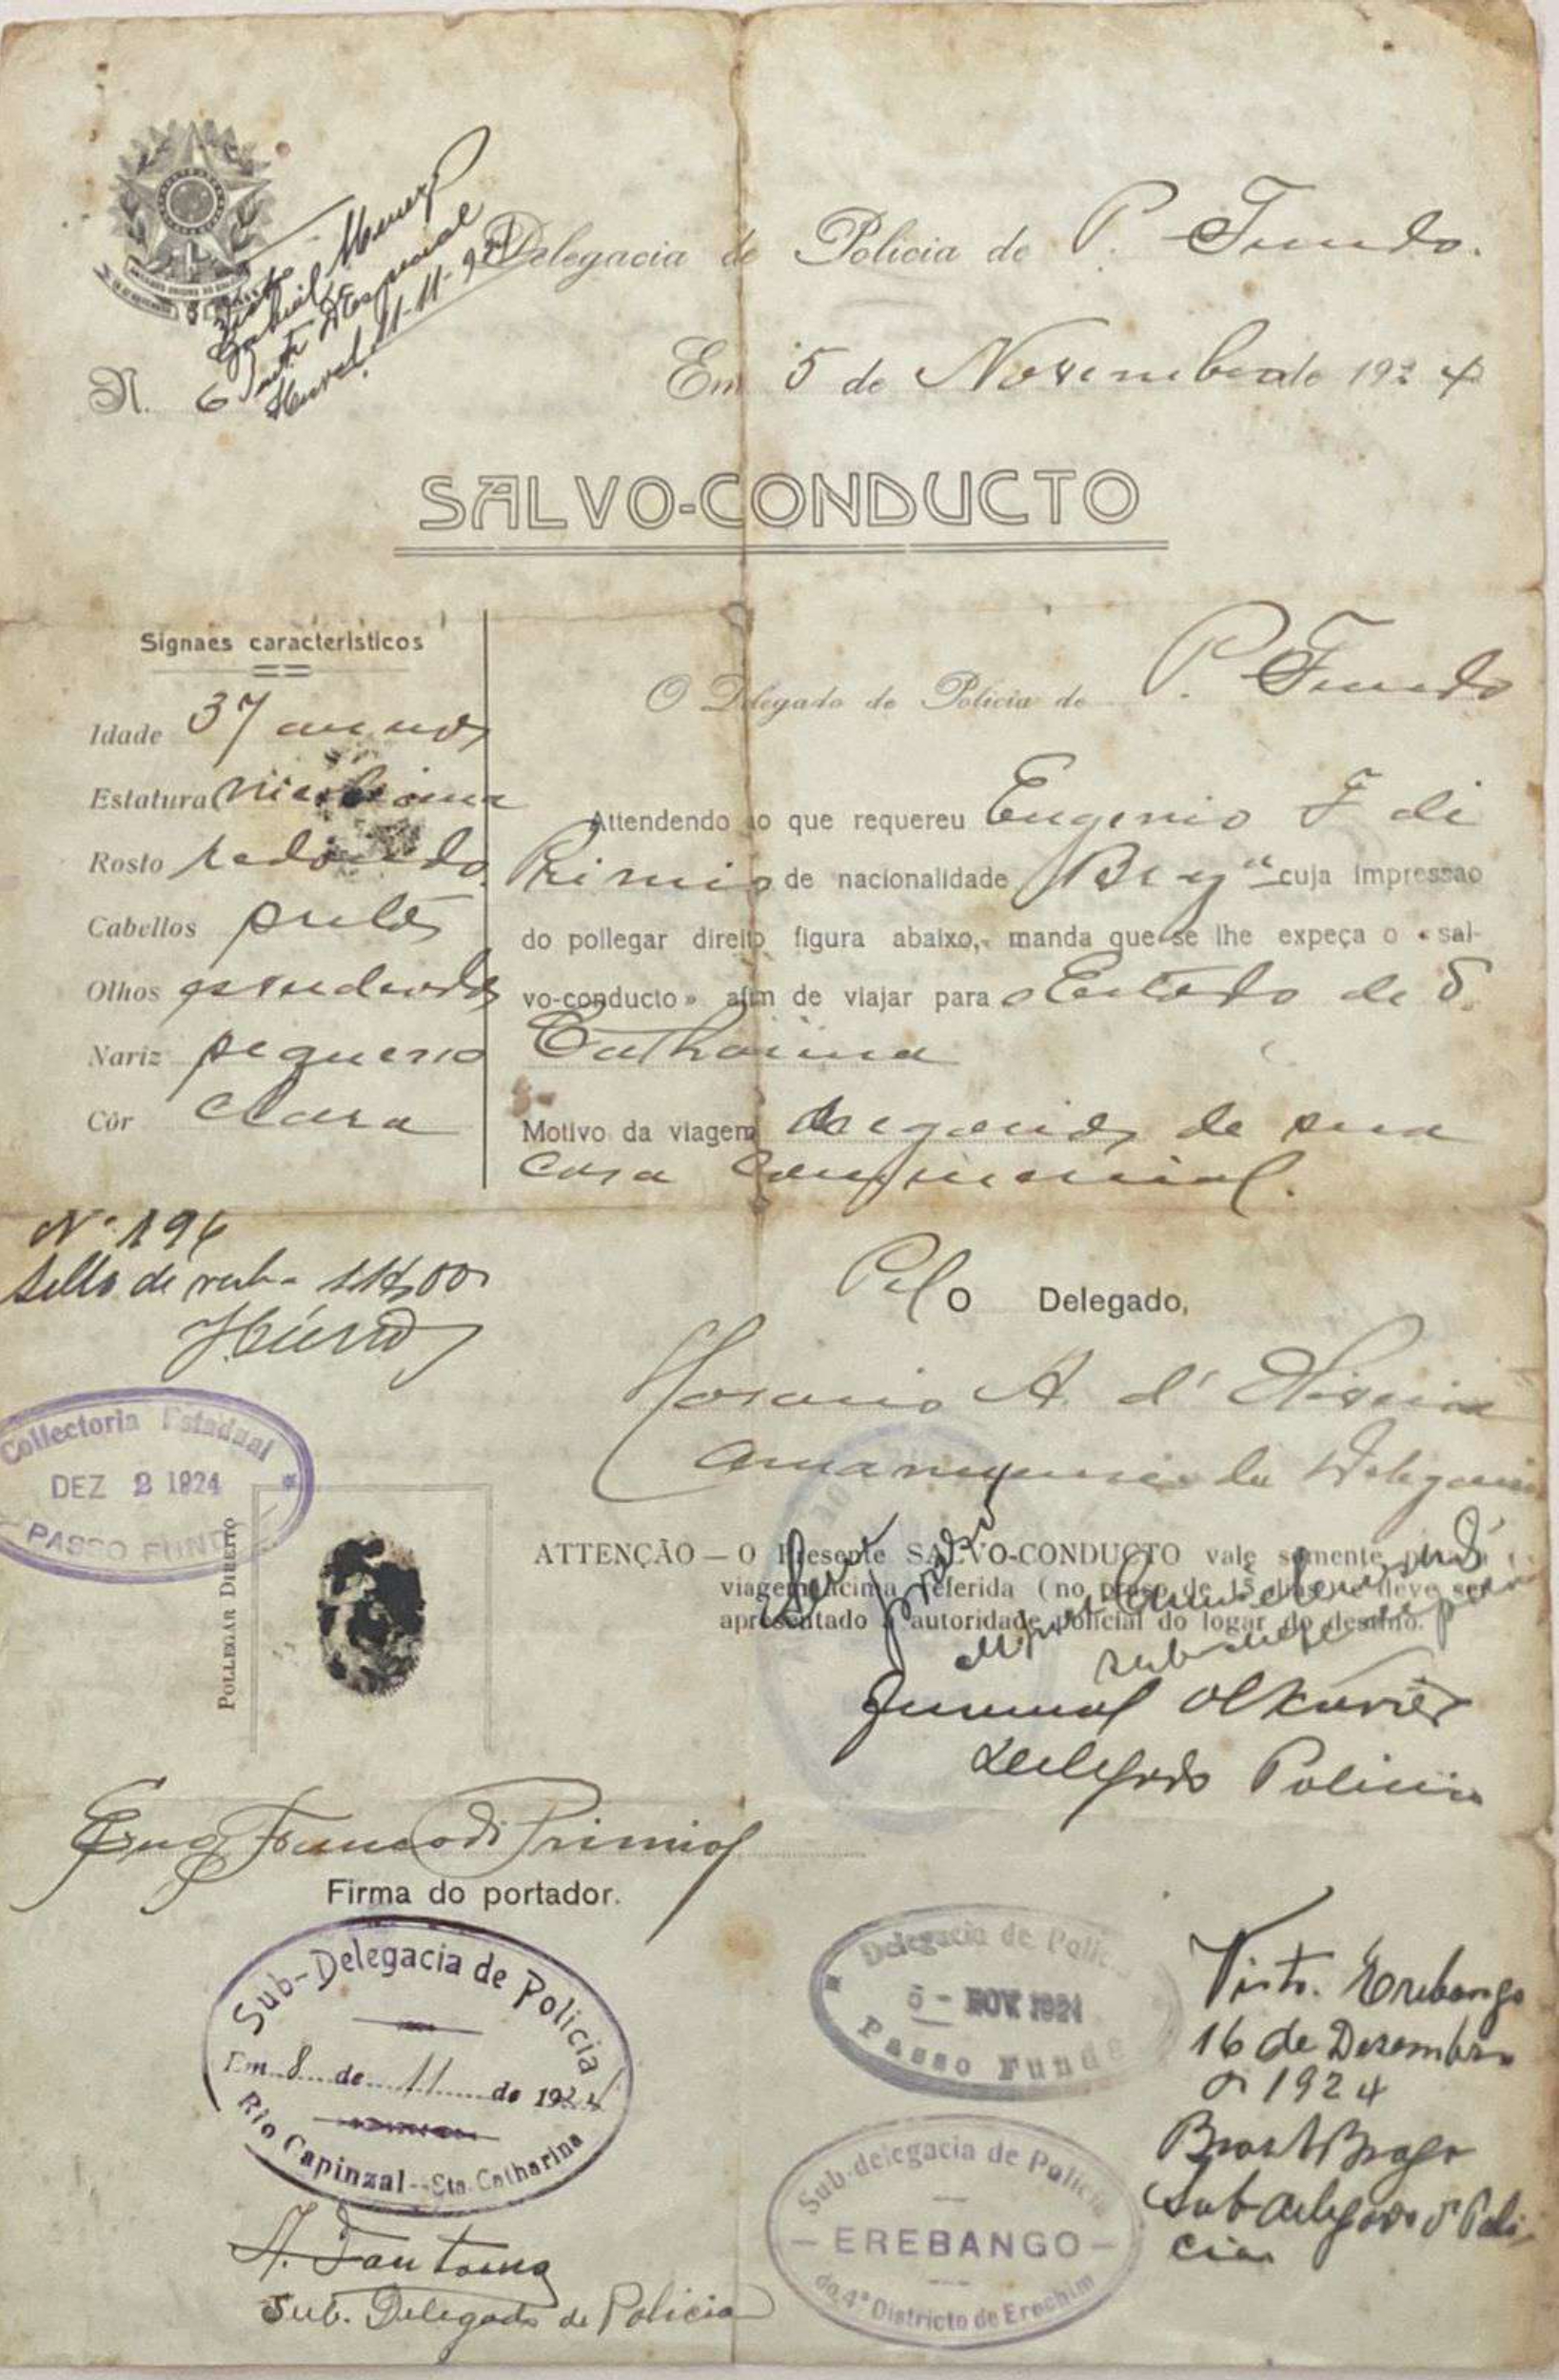 Delegacia de Policia de P. Fundo.
N. 6
Em 5 de Novembro de 1924
SALVO-CONDUCTO
Signaes caracteristicos
Idade 37 annos
Estatura mediana
Rosto redondo
Cabellos pretos
Olhos esverdeados
Nariz pequeno
Côr Clara
O Delegado de Policia de P. Fundo
Attendendo ao que requereu Eugenio F di
Primio de nacionalidade cuja impressao
do pollegar direito figura abaixo, manda que se lhe expeça o «sal-
vo-conducto» afim de viajar para o Estado de S.
Catharina
Motivo da viagem negocios de sua
casa commercial.
Nº 196
Sello de verba
Pelo Delegado,
A. d' Oliveira
Amanuense da Delegacia
Collectoria Estadual
DEZ 2 1924
PASSO FUNDO
POLLEGAR DIREITO
ATTENÇÃO — O Presente SALVO-CONDUCTO vale somente para a
viagem acima referida (no praso de 15 dias e deve ser
apresentado a autoridade policial do logar do destino.
Delegado Policia
Eug Franco di Primio
Firma do portador.
Sub-Delegacia de Policia
Em 8 de 11 de 1924
Rio Capinzal--Sta. Catharina
Sub. Delegado de Policia
Delegacia de Policia
5 - NOV 1924
Passo Fundo
Visto. Erebango
16 de Dezembro
de 1924
Sub delegado de Poli-
cia
Sub-delegacia de Policia
- EREBANGO -
do 4º Districto de Erechim